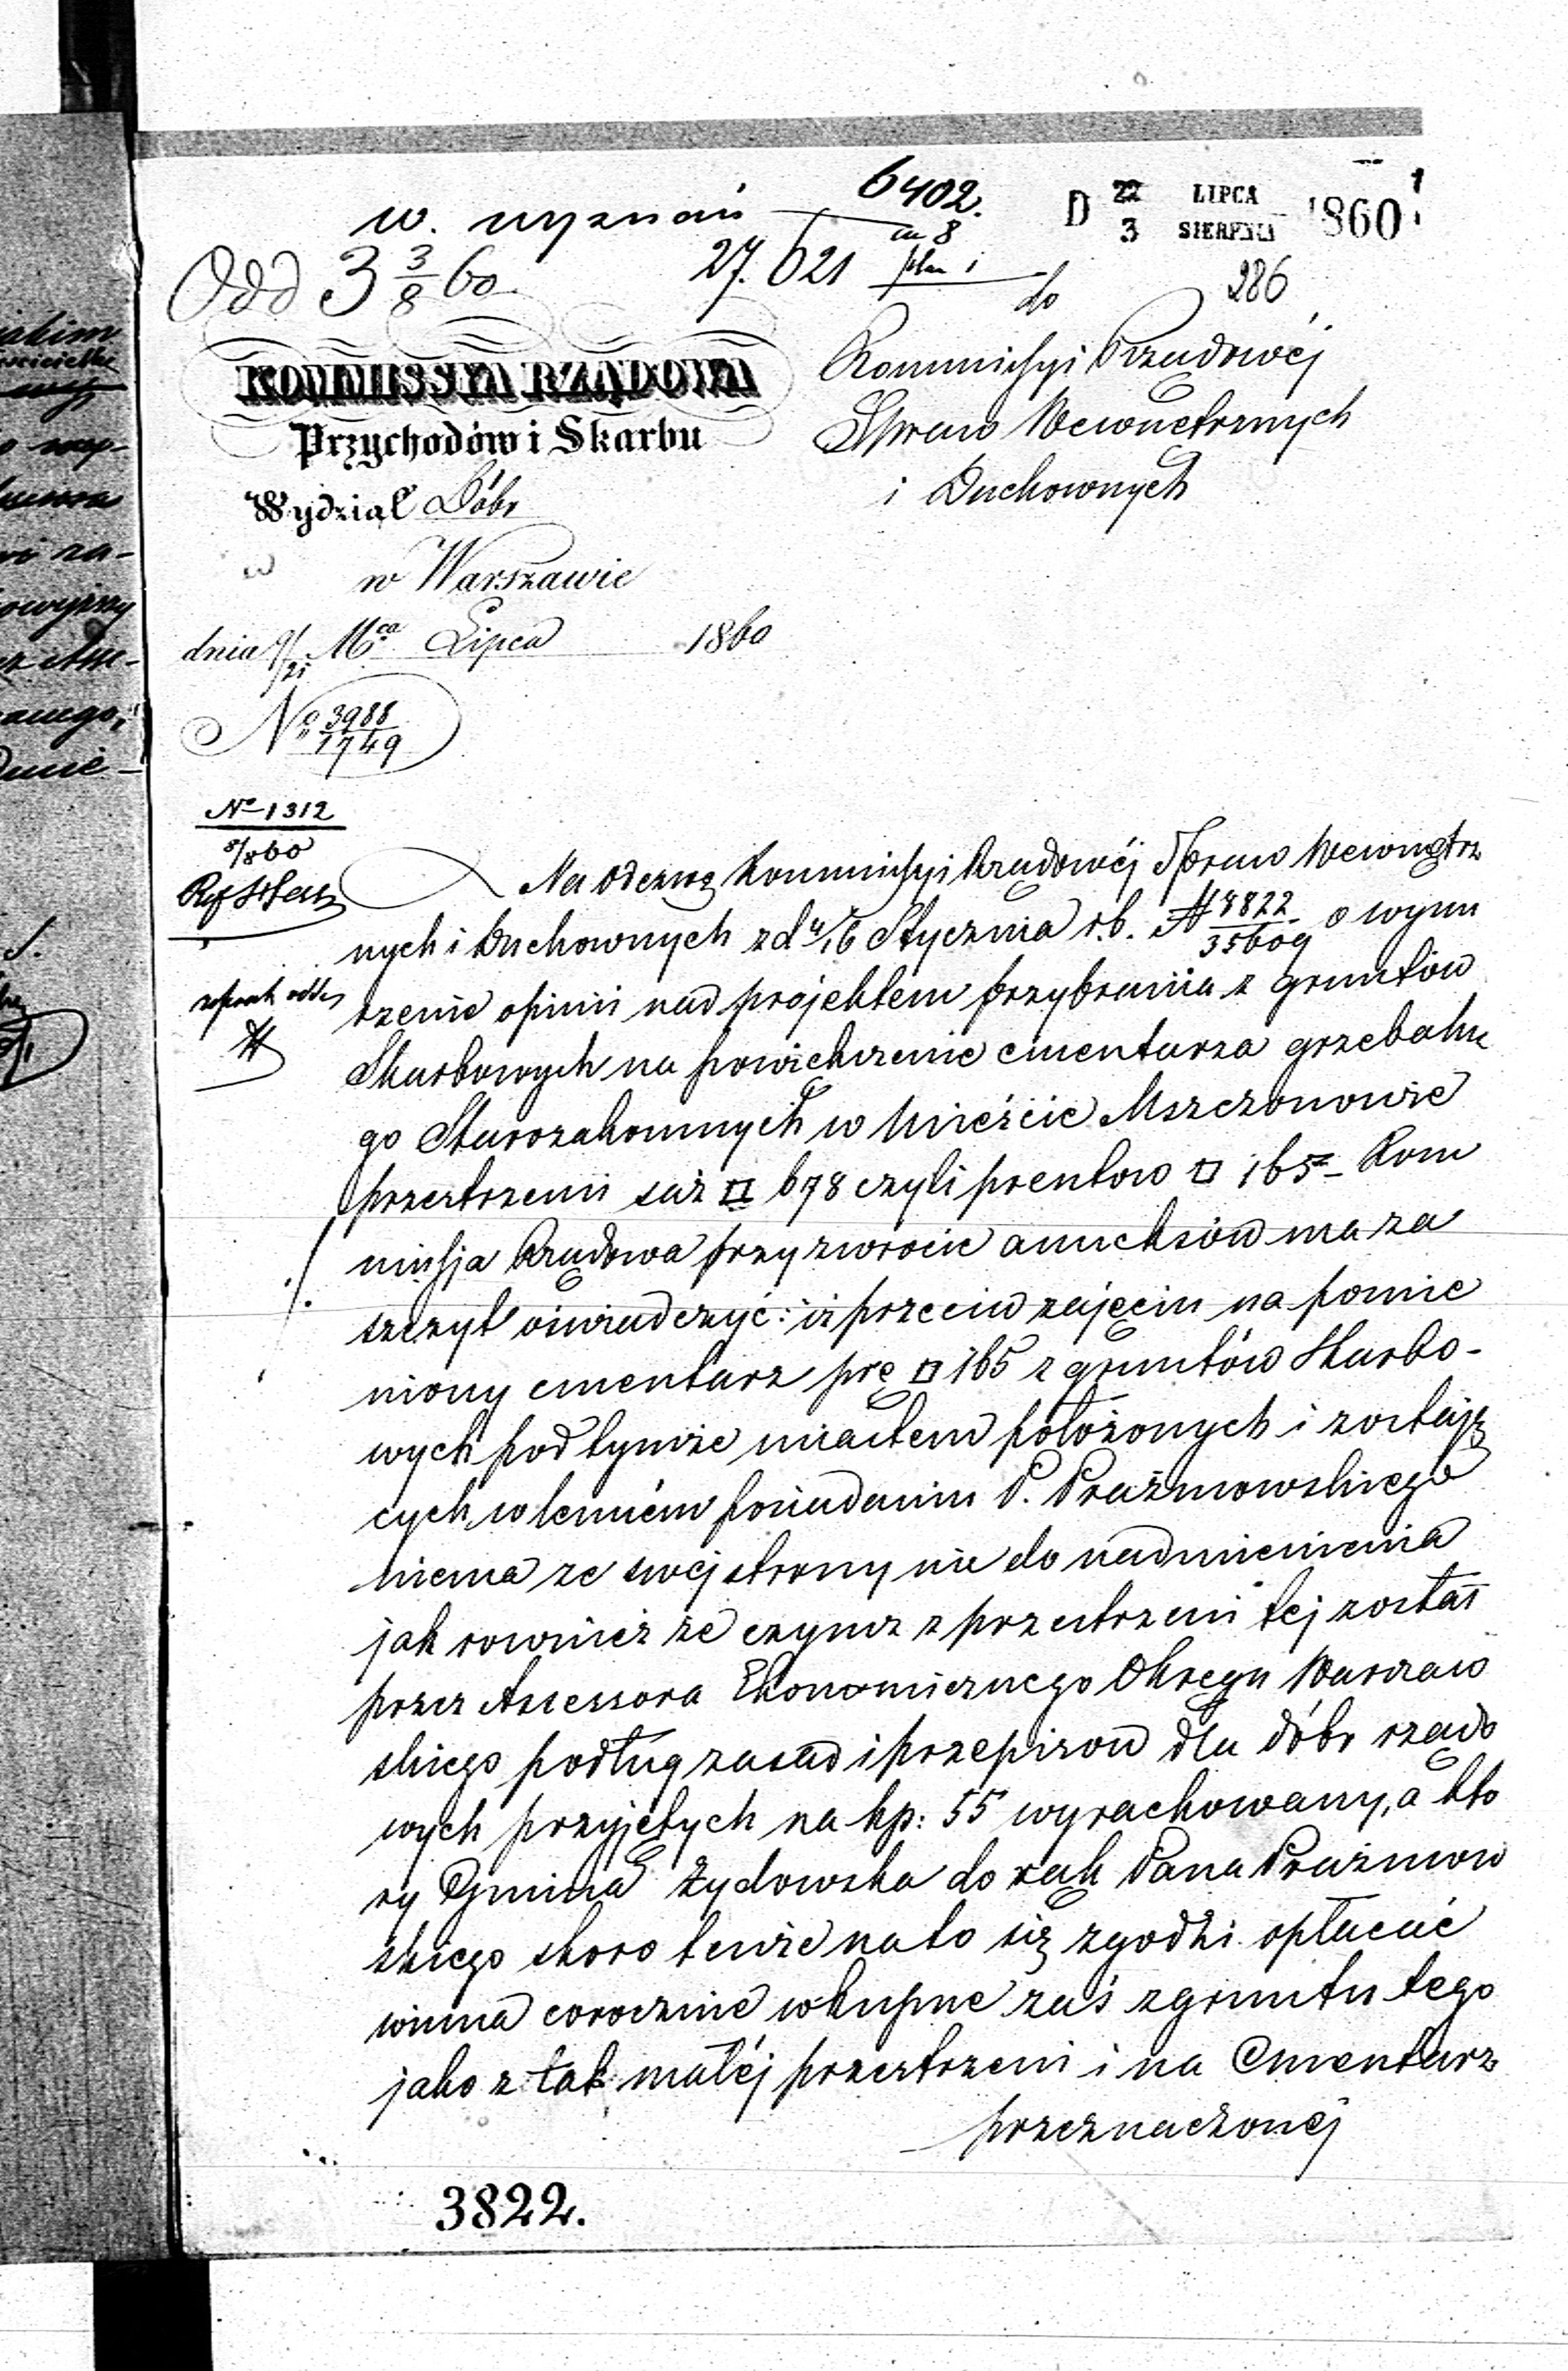 w. wyznań 6402.
an 8
D 22 LIPCA 1860
3 SIERPNIA
Odd 3 3/8 60
27.621 plan 1
286
do
Kommissyi Rządowéj
Spraw Wewnętrznych
i Duchownych
KOMMISSYA RZĄDOWA
Przychodów i Skarbu
Wydział Dóbr
w Warszawie
dnia 9/21 Mca Lipca 1860
No 3988/1749
No 1312
8/8 60
Na odezwę Kommissyi Rządowéj Spraw Wewnętrz
nych i Duchownych z d 4/16 Stycznia r.b. N 8822/35609 o wynu
rzenie opinii nad projektem przybrania z gruntów
Skarbowych na powiększenie cmentarza grzebalne
go Starozakonnych w Mieście Mszczonowie
przestrzeni saż □ 678 czyli prentow □ 165 – Kom
missja Rządowa przy zwrocie annexów ma za
szczyt oświadczyć: iż przeciw zajęciu na pomie
niony cmentarz prę □ 165 z gruntów Skarbo-
wych pod tymże miastem położonych i zostają
cych w lenném posiadaniu P. Prażmowskiego
niema ze swej strony nic do nadmienienia
jak rownież że czynsz z przestrzeni tej został
przez Assessora Ekonomicznego Okręgu Warszaw
skiego podług zasad i przepisow dla dóbr rządo
wych przyjętych na kp: 55 wyrachowany, a kto
ry Gmina Żydowska do rąk Pana Prażmow
skiego skoro tenże na to się zgodzi opłacać
winna corocznie wkupne zaś z gruntu tego
jako z tak małéj przestrzeni i na Cmentarz
przeznaczonej
3822.